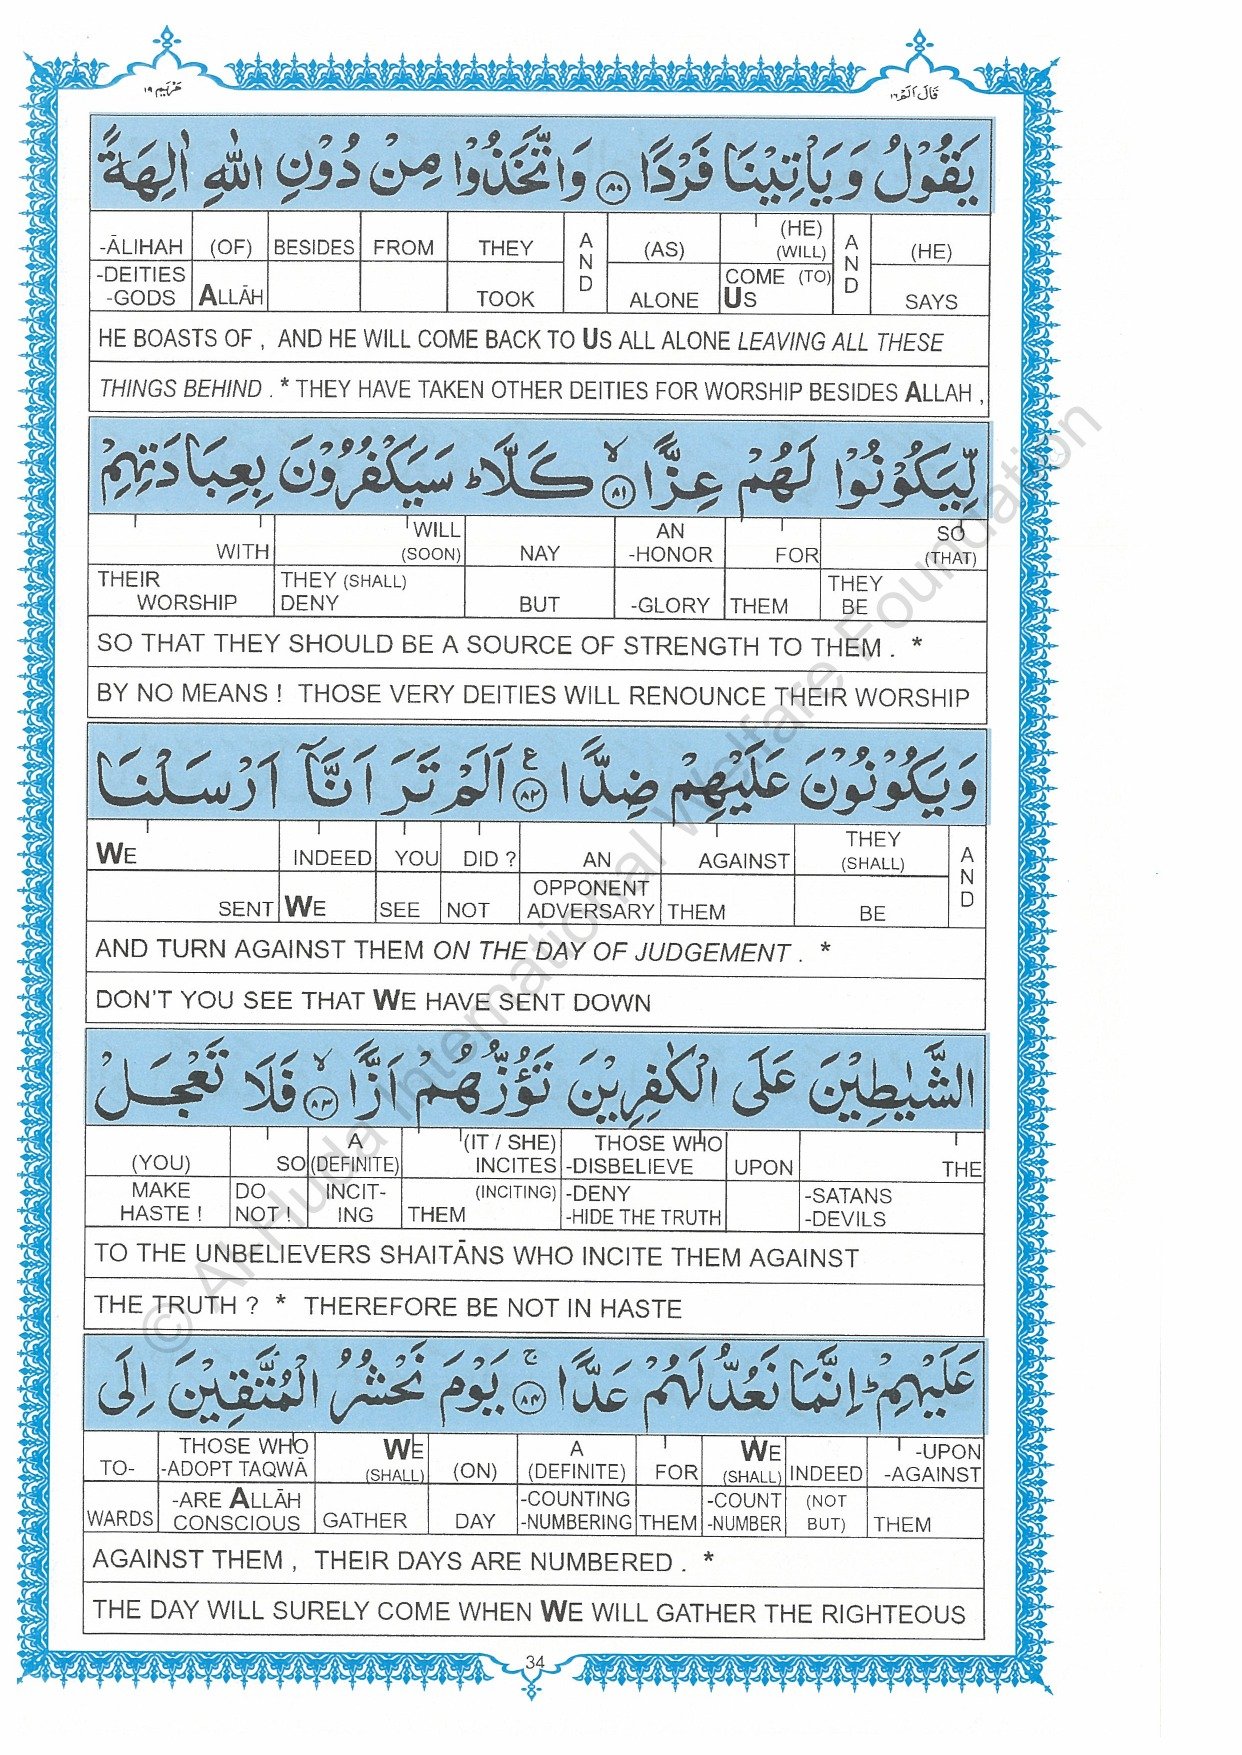 مَرْيَم ١٩
قَالَ اَلَمْ ١٦
يَقُوْلُ وَيَأْتِيْنَا فَرْدًا ۝٨٠ وَاتَّخَذُوْا مِنْ دُوْنِ اللّٰهِ اٰلِهَةً
-ĀLIHAH (OF) BESIDES FROM THEY AND (AS) (HE) (WILL) AND (HE)
-DEITIES -GODS ALLĀH TOOK ALONE COME (TO) US SAYS
HE BOASTS OF , AND HE WILL COME BACK TO US ALL ALONE LEAVING ALL THESE
THINGS BEHIND . * THEY HAVE TAKEN OTHER DEITIES FOR WORSHIP BESIDES ALLAH ,
لِّيَكُوْنُوْا لَهُمْ عِزًّا ۝٨١ۙ كَلَّا ؕ سَيَكْفُرُوْنَ بِعِبَادَتِهِمْ
WITH WILL (SOON) NAY AN -HONOR FOR SO (THAT)
THEIR WORSHIP THEY (SHALL) DENY BUT -GLORY THEM THEY BE
SO THAT THEY SHOULD BE A SOURCE OF STRENGTH TO THEM . *
BY NO MEANS ! THOSE VERY DEITIES WILL RENOUNCE THEIR WORSHIP
وَيَكُوْنُوْنَ عَلَيْهِمْ ضِدًّا ۝٨٢ ع اَلَمْ تَرَ اَنَّآ اَرْسَلْنَا
WE INDEED YOU DID ? AN AGAINST THEY (SHALL) AND
SENT WE SEE NOT OPPONENT ADVERSARY THEM BE
AND TURN AGAINST THEM ON THE DAY OF JUDGEMENT . *
DON'T YOU SEE THAT WE HAVE SENT DOWN
الشَّيٰطِيْنَ عَلَى الْكٰفِرِيْنَ تَؤُزُّهُمْ اَزًّا ۝٨٣ۙ فَلَا تَعْجَلْ
(YOU) SO A (DEFINITE) (IT / SHE) INCITES THOSE WHO -DISBELIEVE UPON THE
MAKE HASTE ! DO NOT ! INCIT-ING THEM (INCITING) -DENY -HIDE THE TRUTH -SATANS -DEVILS
TO THE UNBELIEVERS SHAITĀNS WHO INCITE THEM AGAINST
THE TRUTH ? * THEREFORE BE NOT IN HASTE
عَلَيْهِمْ ؕ اِنَّمَا نَعُدُّ لَهُمْ عَدًّا ۝٨٤ۚ يَوْمَ نَحْشُرُ الْمُتَّقِيْنَ اِلَى
TO- THOSE WHO -ADOPT TAQWĀ WE (SHALL) (ON) A (DEFINITE) FOR WE (SHALL) INDEED -UPON -AGAINST
WARDS -ARE ALLĀH CONSCIOUS GATHER DAY -COUNTING -NUMBERING THEM -COUNT -NUMBER (NOT BUT) THEM
AGAINST THEM , THEIR DAYS ARE NUMBERED . *
THE DAY WILL SURELY COME WHEN WE WILL GATHER THE RIGHTEOUS
34
© Al-Huda International Welfare Foundation